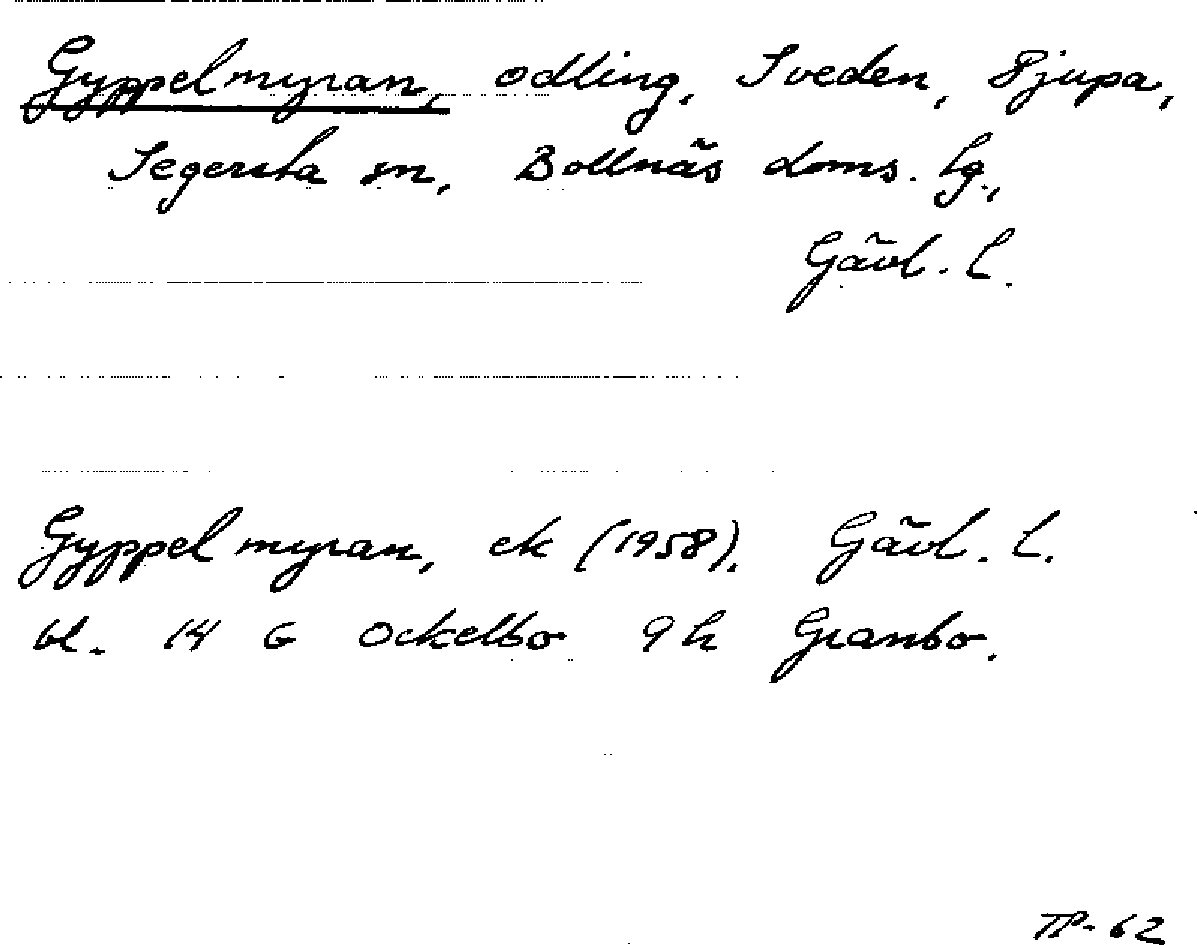 Gyppelmyran, odling, Sveden, Djupa,
Segersta sn, Bollnäs doms. lg.,
Gävl. l.
Gyppelmyran, ek (1958). Gävl. l.
bl. 14 G Ockelbo 9h Granbo.
TP-62